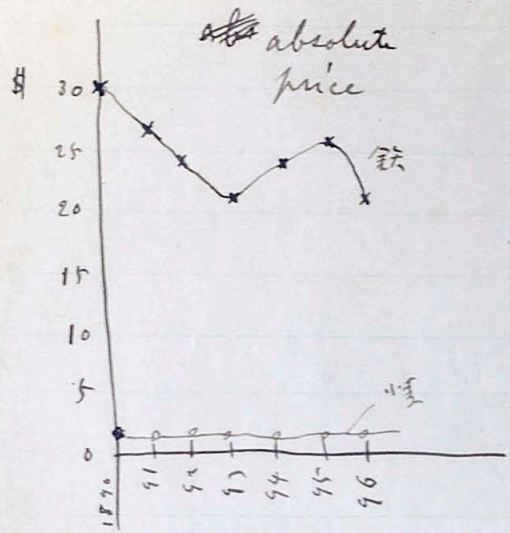 absolute
price
$
30
25
鉄
20
15
10
5
0
1890
91
92
93
94
95
96